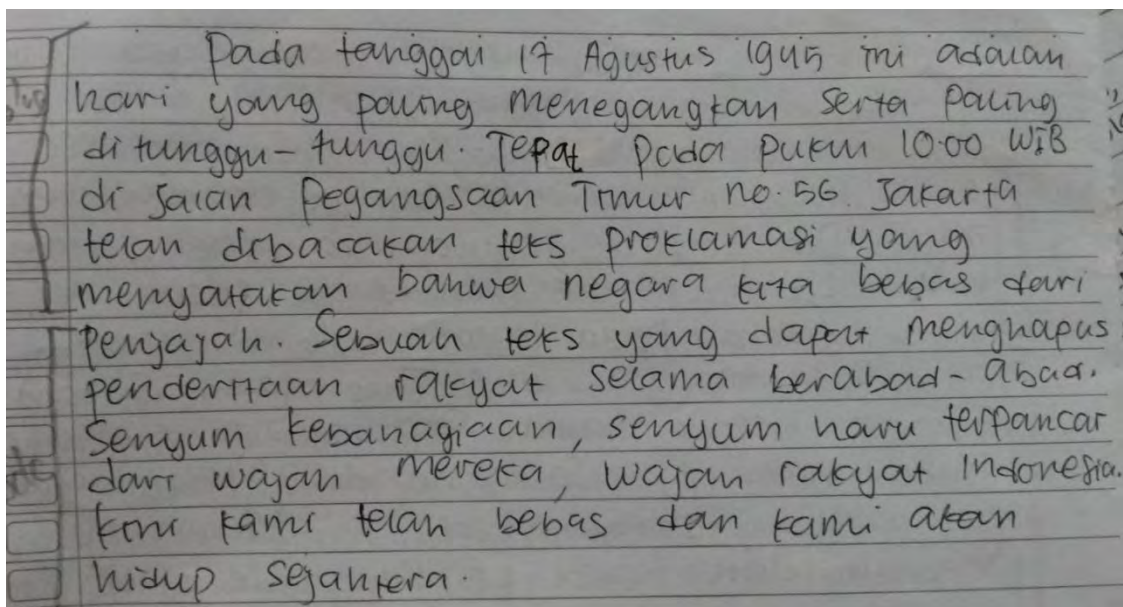 Pada tanggal 17 Agustus 1945 ini adalah
hari yang paling menegangkan serta paling
di tunggu-tunggu. Tepat pada pukul 10.00 WIB
di Jalan Pegangsaan Timur no.56. Jakarta
telah dibacakan teks proklamasi yang
menyatakan bahwa negara kita bebas dari
penjajah. Sebuah teks yang dapat menghapus
penderitaan rakyat selama berabad-abad.
Senyum kebahagiaan, senyum haru terpancar
dari wajah mereka, wajah rakyat Indonesia.
kini kami telah bebas dan kami akan
hidup sejahtera.